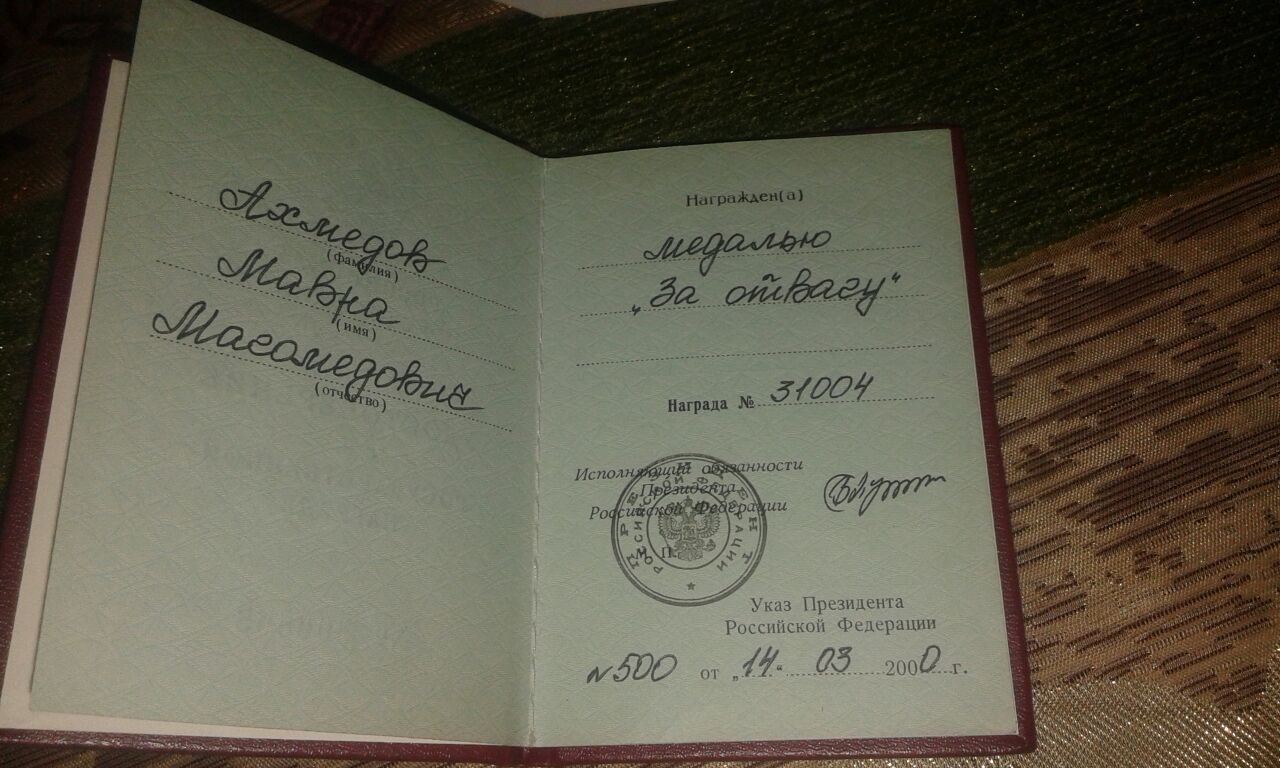 Ахмедов
(фамилия)
Мавра
(имя)
Магомедович
(отчество)
Награжден(а)
медалью
„За отвагу“
Награда № 31004
Исполняющий обязанности
Президента
Российской Федерации
ПРЕЗИДЕНТ
РОССИЙСКОЙ ФЕДЕРАЦИИ
М. П.
Указ Президента
Российской Федерации
№500 от „14“ 03 2000 г.